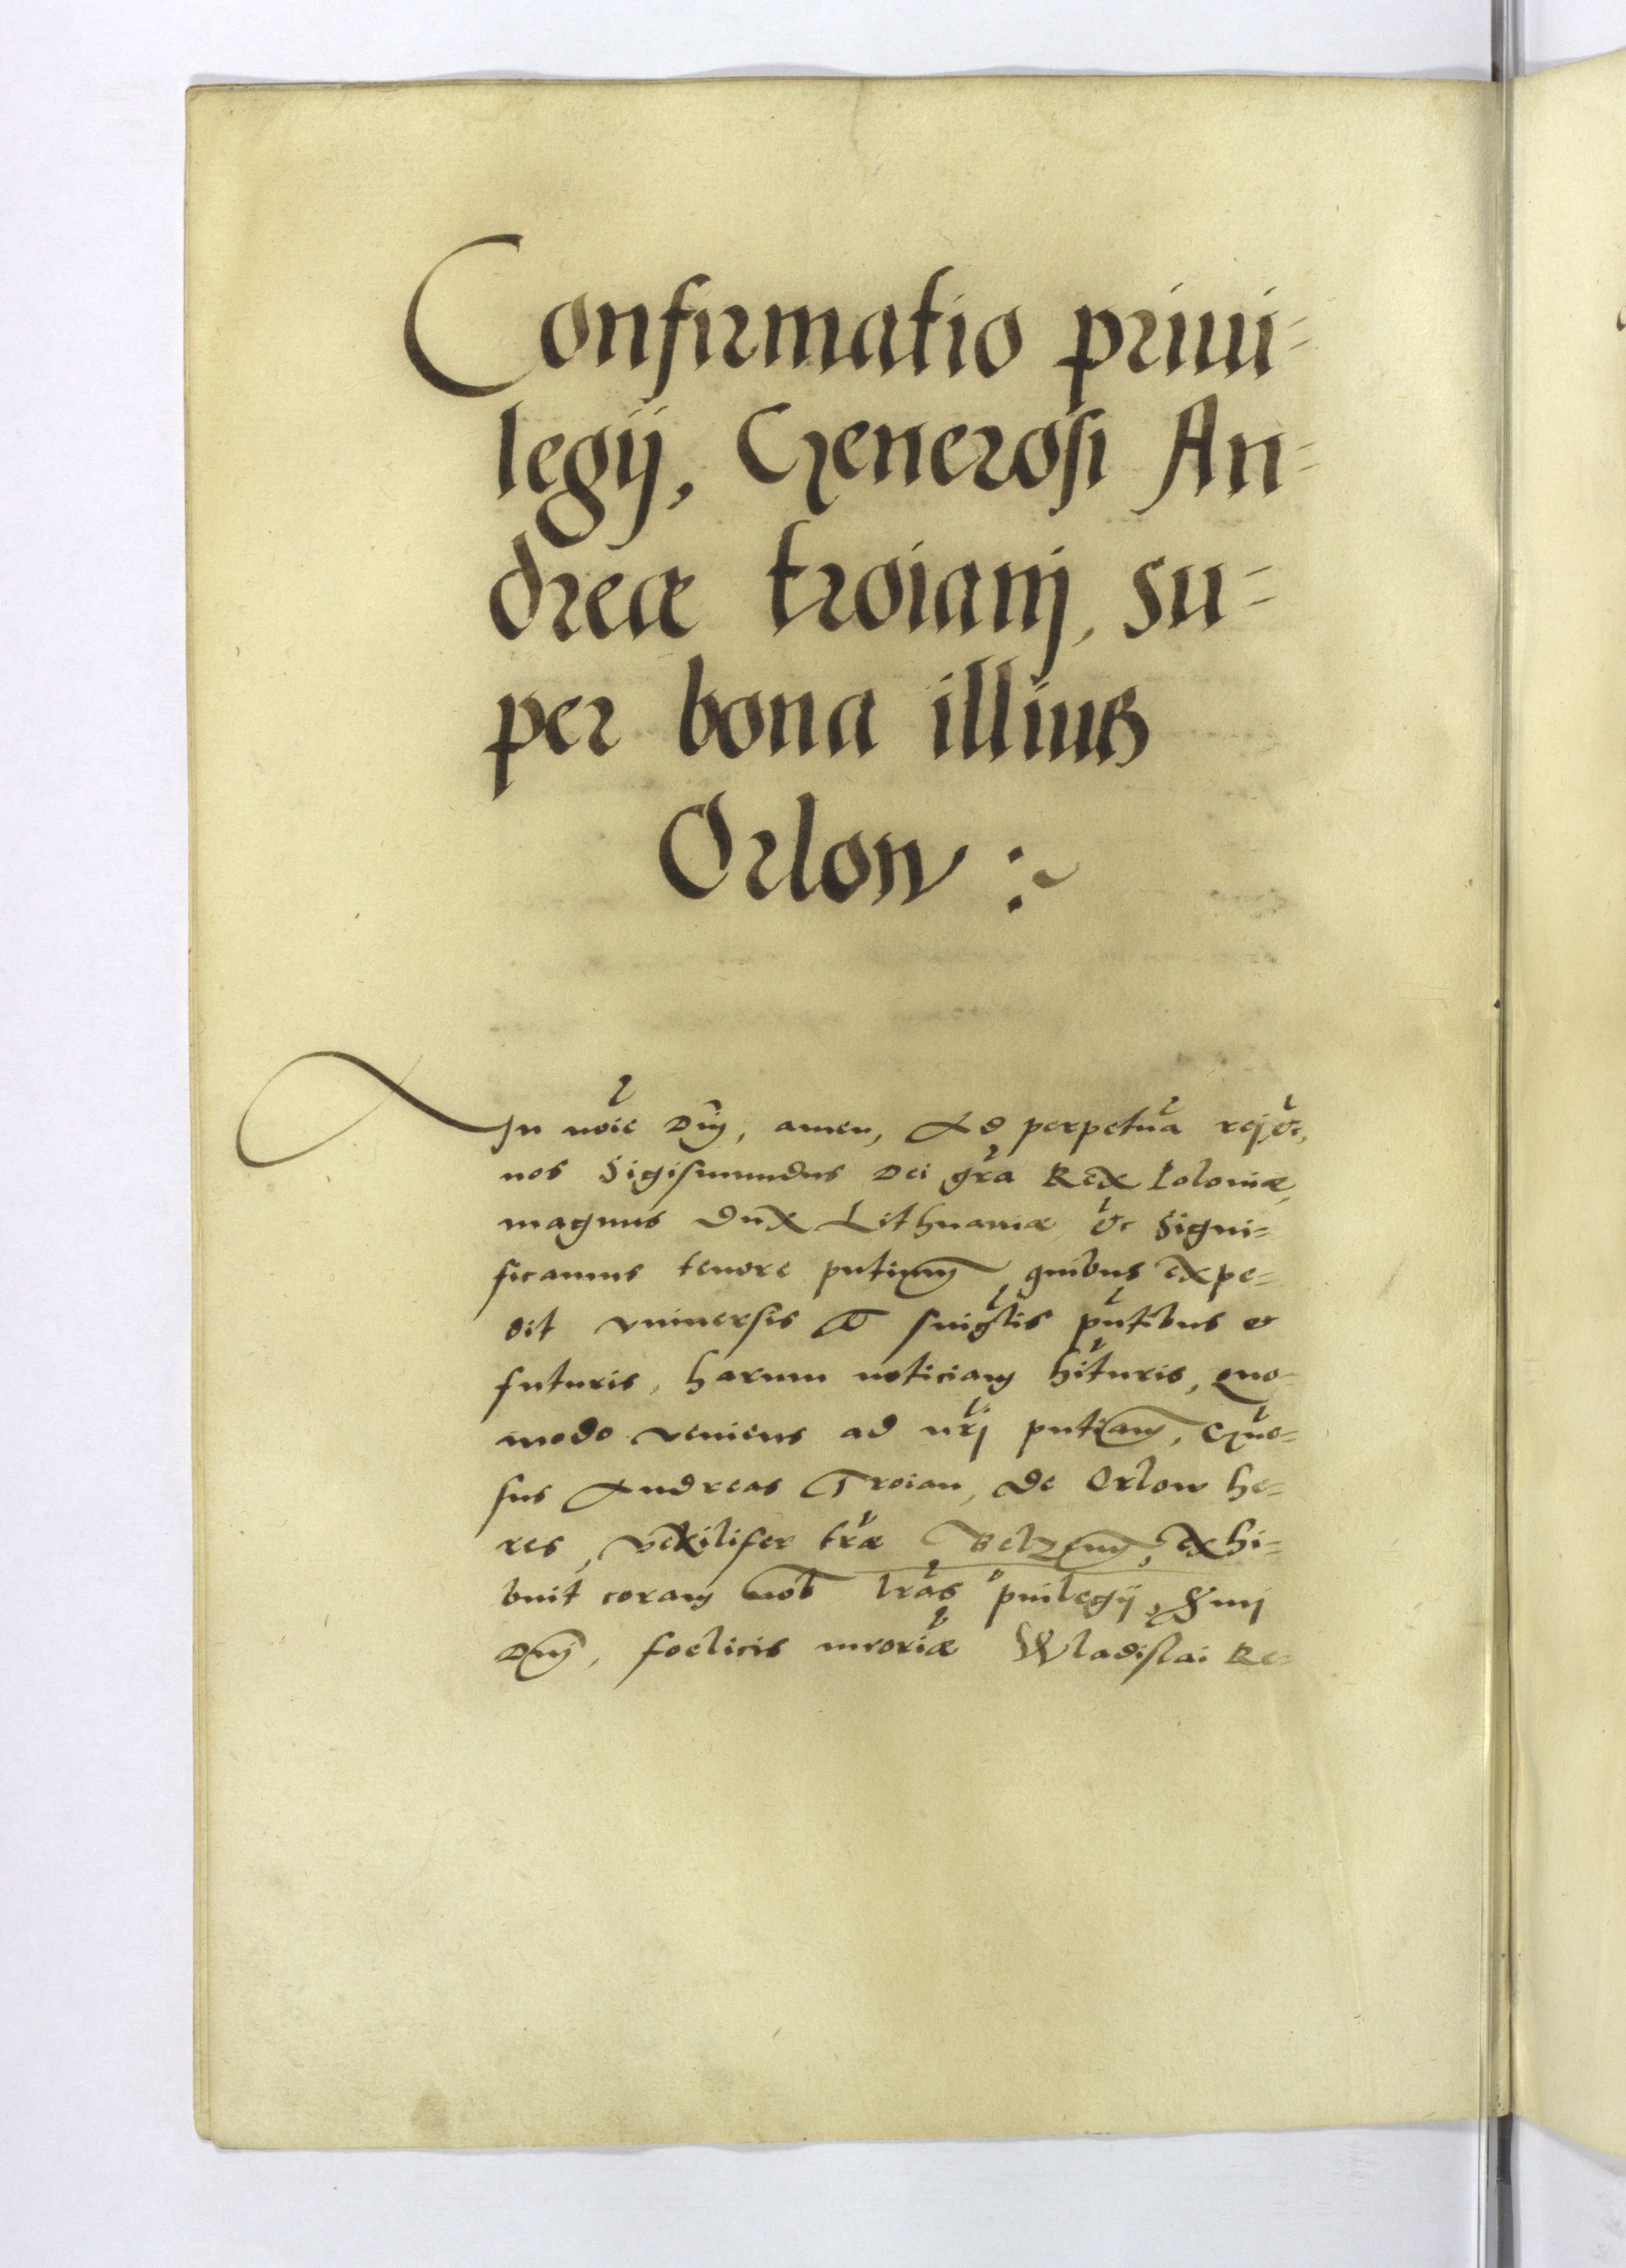 Confirmatio priui=
legij, Generosi An=
dreæ troianj, su=
per bona illius
Orlow :~
In noie Dnj, amen, Ad perpetua rej &c,
nos Sigismundus Dei gra Rex Poloniæ,
magnus dux Lithuaniæ &c Signi=
ficamus tenore pntium quibus expe=
dit vniuersis et singlis pntibus &
futuris, harum noticiam hituris, Quo=
modo veniens ad nrj pntiam, Gno=
sus Andreas Troian, de Orlow he=
res, vexilifer træ Belzen, exhi=
buit coram nob lras puilegij, Smj
Dnj, foelicis mroriæ Wladislai Re=